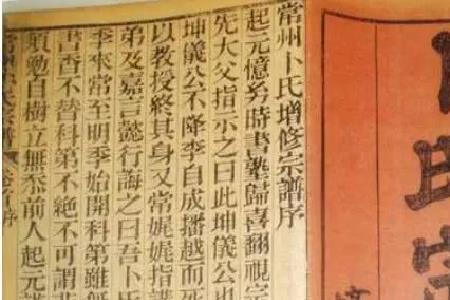 常州卜氏增修宗譜序
起元憶努時書塾歸喜翻視宗
先大父指示之曰此坤儀公也
坤儀公不降李自成播越而死
以教授終其身又常娓娓指譜
弟及嘉言懿行誨之曰吾卜氏
季來常至明季始開科第雖無
書香不替科第不絕不可謂非
須勉自樹立無忝前人起元謹
氏宗